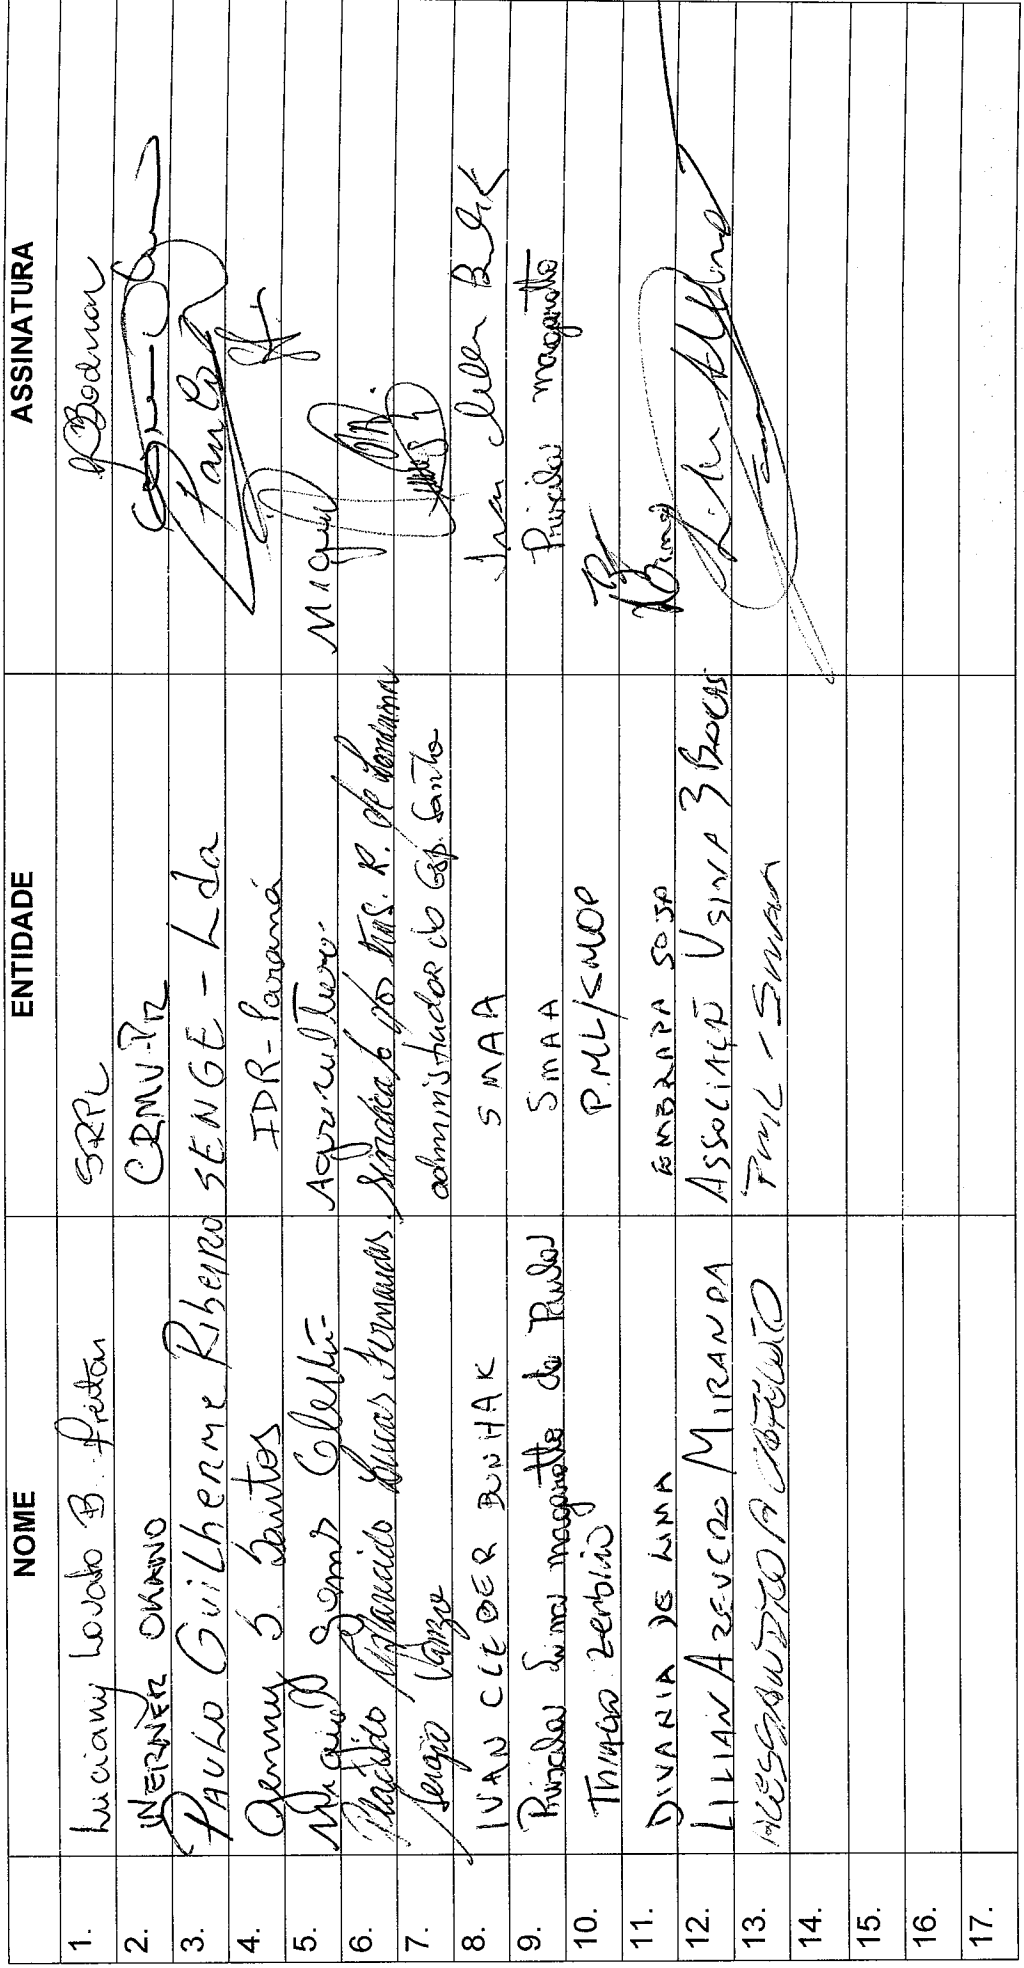 NOME ENTIDADE ASSINATURA
1. Luciany Lovato B. Freitas SRPL Bodnar
2. WERNER OKANO CRMV-PR
3. PAULO GUILHERME RIBEIRO SENGE - Lda Paulo
4. Genny S. Santos IDR-Paraná
5. Miguel Gomes Agricultor. Miguel
6. Placidio Lucas Fernandes. Sindicato dos Tras. R. de Londrina
7. Sergio Vanzo administrador do Esp. Santo
8. IVAN CLEBER BUNHAK SMAA Ivan Cleber Bunhak
9. Priscila Lima magarotto de Paula SMAA Priscila magarotto
10. THIAGO Zerbinio P.ML/SMOP
11. DIVANIA DE LIMA EMBRAPA SOJA
12. LILIAN AZEVEDO MIRANDA ASSOCIAÇÃO USINA 3 BOCAS
13. ALESSANDRO A PML - SMAA
14.
15.
16.
17.